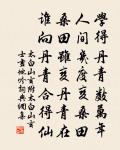 學得丹青數萬年
人間幾度變桑田
桑田雖變丹青在
誰向丹青合得仙
太白山玄附太白山玄
士畫地吟詞典網集